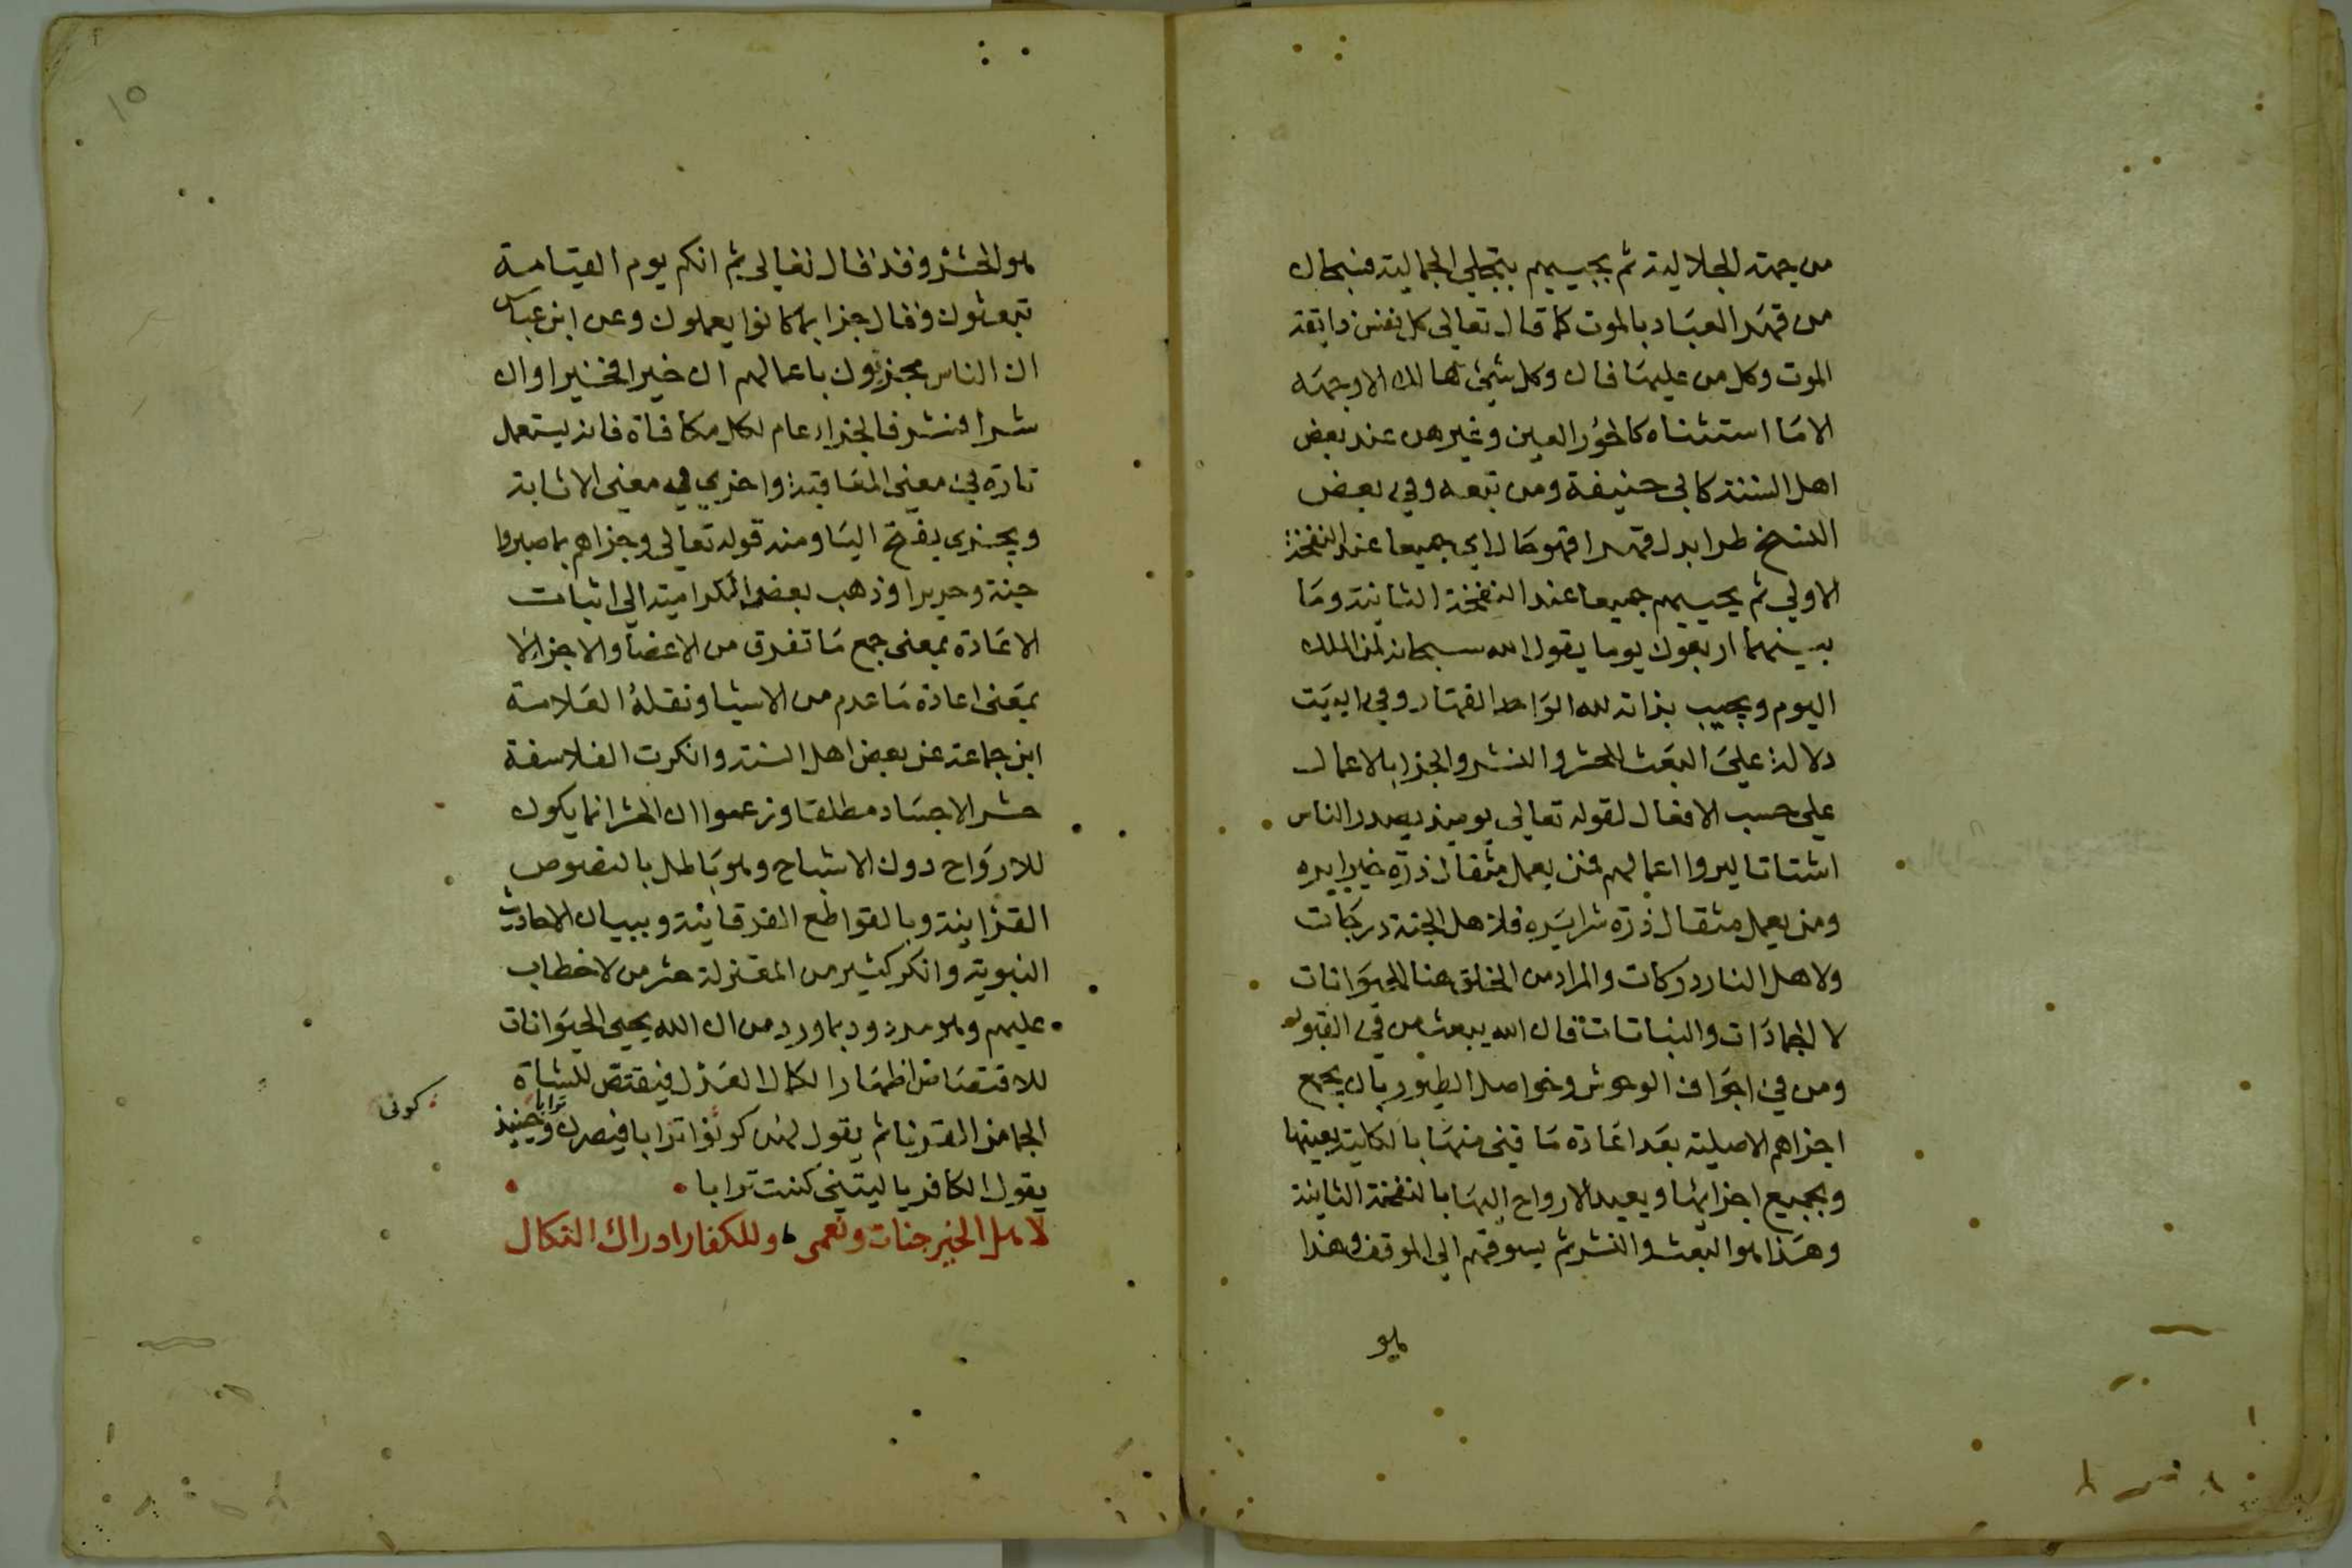 من جهة الجلالية ثم يحييهم بتجلي الجمالية فسبحان
من قهر العباد بالموت كما قال تعالى كل نفس ذايقة
الموت وكل من عليها فان وكل شيئ هالك الا وجهه
الا ما استثناه كالحور العين وغيرهن عند بعض
اهل السنة كابي حنيفة ومن تبعه وفي بعض
النسخ طرا بدل قهرا فهو حال اي جميعا عند النفخة
الاولي ثم يحييهم جميعا عند النفخة الثانية وما
بينهما اربعون يوما يقول الله سبحانه لمن الملك
اليوم ويجيب بذاته لله الواحد القهار وفي البيت
دلالة علي البعث الحشر والنشر والجزا بالاعمال
علي حسب الافعال لقوله تعالي يوميذ يصدر الناس
اشتاتا ليروا اعمالهم فمن يعمل مثقال ذرة خيرا يره
ومن يعمل مثقال ذرة شرا يره فلاهل الجنة درجات
ولاهل النار دركات والمراد من الخلق هنا الحيوانات
لا الجمادات والنباتات قال الله يبعث من في القبور
ومن في اجواف الوحوش وحواصل الطيور بان يجمع
اجزاهم الاصلية بعد اعادة ما فني منها بالكلية بعينها
وبجميع اجزايها ويعيد الارواح اليها بالنفخة الثانية
وهذا هو البعث والنشر ثم يسوقهم الي الموقف وهذا
هو
١٥
هو الحشر وقد قال تعالي ثم انكم يوم القيامة
تبعثون وقال جزا بما كانوا يعملون وعن ابن عباس
ان الناس مجزيون باعمالهم ان خيرا فخير او ان
شرا فشر فالجزاء عام لكل مكافاة فانه يستعمل
تارة في معني المعاقبة واخري في معني الاثابة
ويجزي بفتح اليا ومنه قوله تعالي وجزاهم بما صبروا
جنة وحريرا وذهب بعض الكرامية الي اثبات
الاعادة بمعني جمع ما تفرق من الاعضا والاجزا لا
بمعني اعادة ما عدم من الاشيا ونقله العلامة
ابن جماعة عن بعض اهل السنة وانكرت الفلاسفة
حشر الاجساد مطلقا وزعموا ان الحشر انما يكون
للارواح دون الاشباح وهو باطل بالنصوص
القرانية وبالقواطع الفرقانية وببيان الاحاديث
النبوية وانكر كثير من المعتزلة حشر من لا خطاب
عليهم وهو مردود بما ورد من ان الله يحيي الحيوانات
للاقتصاص اظهارا لكمال العدل فيقتص للشاة
الجما من القرنا ثم يقول لهن كونوا ترابا فيصرن ترابا وحينيذ
كوني
يقول الكافر يا ليتني كنت ترابا
لاهل الخير جنات ونعمى وللكفار ادراك النكال